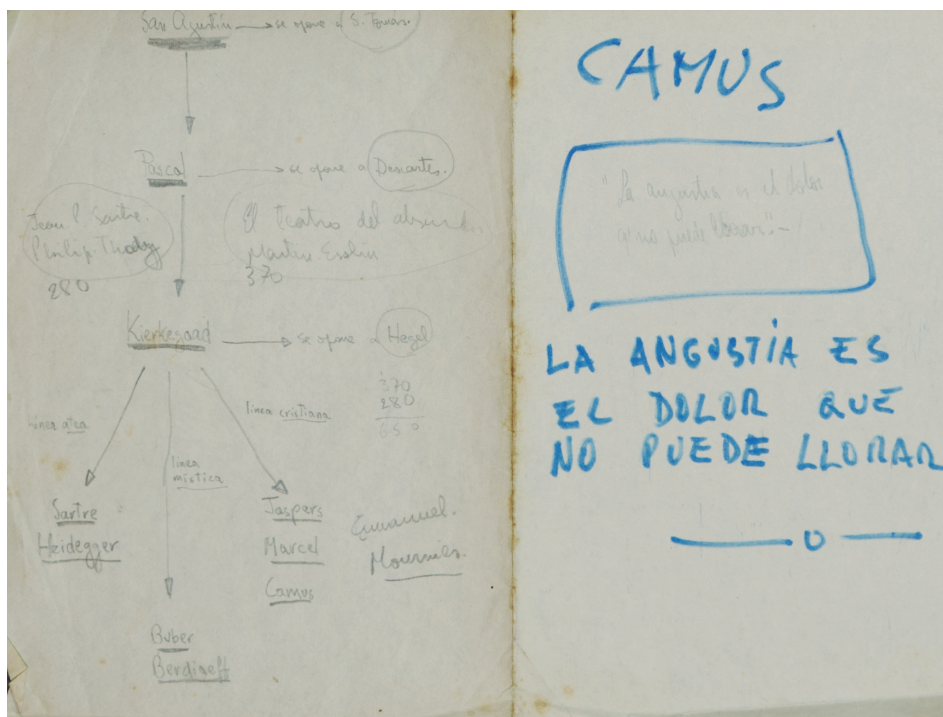 San Agustín se opone a S. Tomás.
Pascal se opone a Descartes.
Jean P. Sartre.
Philip Thody
280
El teatro del absurdo.
Martin Esslin
370
Kierkegaad se opone a Hegel
370
280
650
línea atea
línea mística
línea cristiana
Sartre
Heidegger
Buber
Berdiaeff
Jaspers
Marcel
Camus
Emmanuel.
Mournier.
CAMUS
"La angustia es el dolor
q no puede llorar".-
LA ANGUSTÍA ES
EL DOLOR QUE
NO PUEDE LLORAR